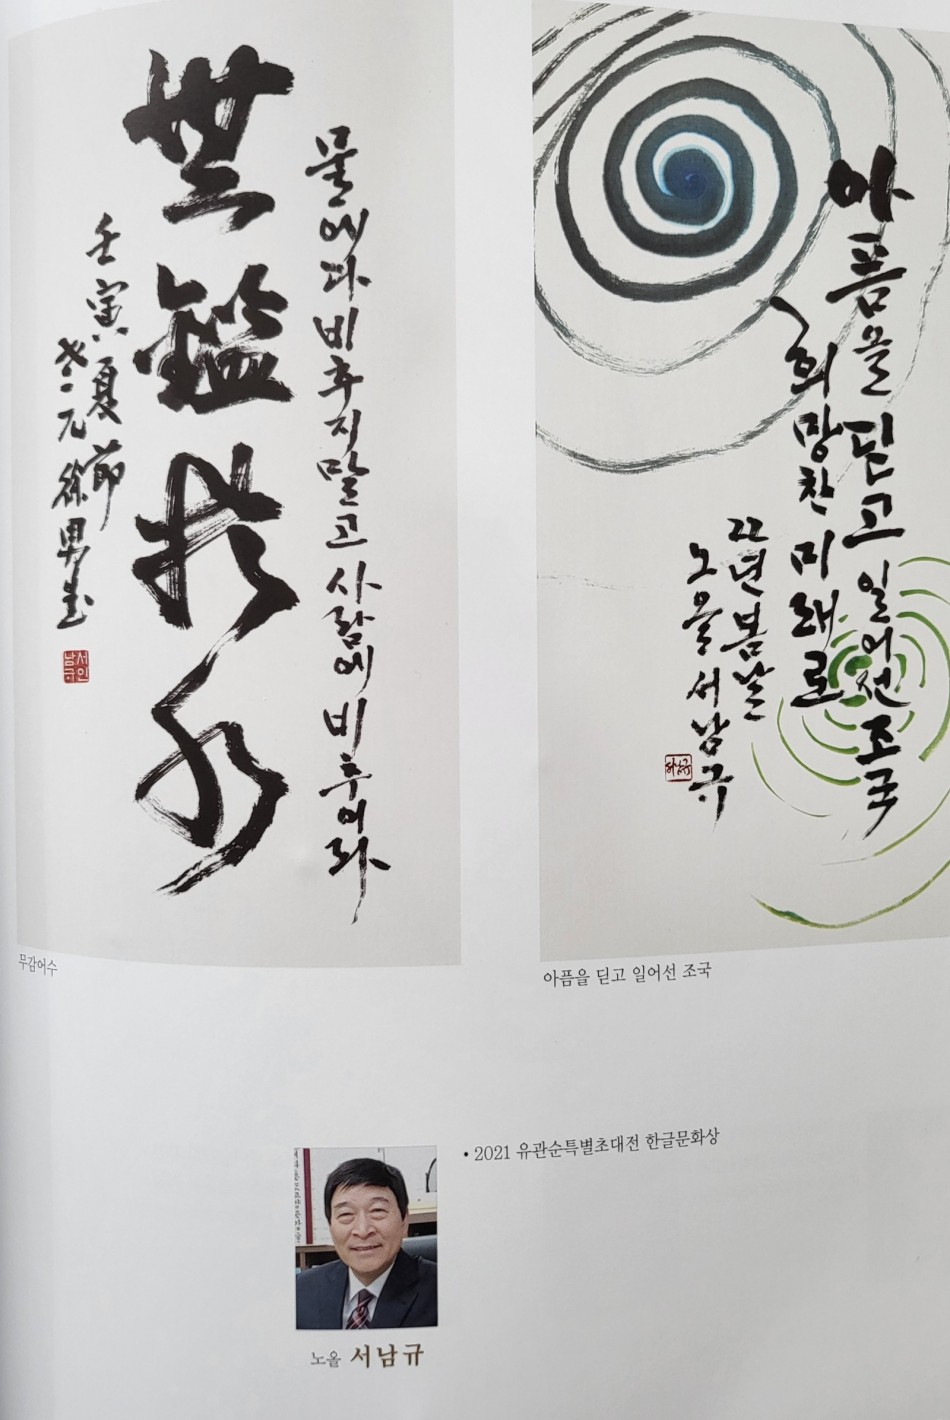 無鑑於水
물에다 비추지 말고 사람에 비추어라
壬寅夏節
元 徐男圭
서인
남규
무감어수
아픔을 딛고 일어선 조국
희망찬 미래로
22년 봄날
노을 서남규
아픔을 딛고 일어선 조국
• 2021 유관순특별초대전 한글문화상
노을 서남규